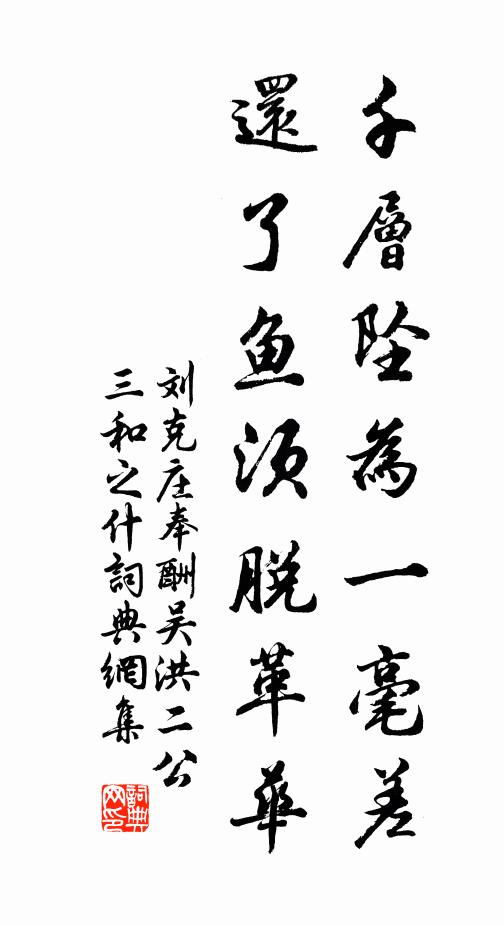 千層墜為一毫差
還了鱼须脫革華
刘克庄奉酬吴洪二公
三和之什詞典網集
詞典网印